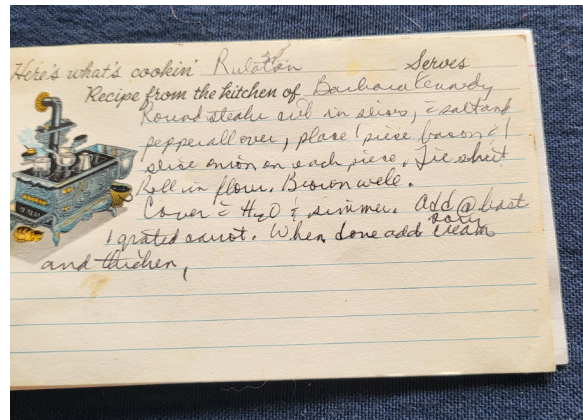 Here's what's cookin' Rulaton Serves
Recipe from the kitchen of Barbara Kennedy
Round steak cut in slices, c̄ salt and
pepper all over, place 1 piece bacon & 1
slice onion on each piece. Tie shut
Roll in flour. Brown well.
Cover c̄ H2O & simmer. add @ least
1 grated carrot. When done add sour cream
and thicken,